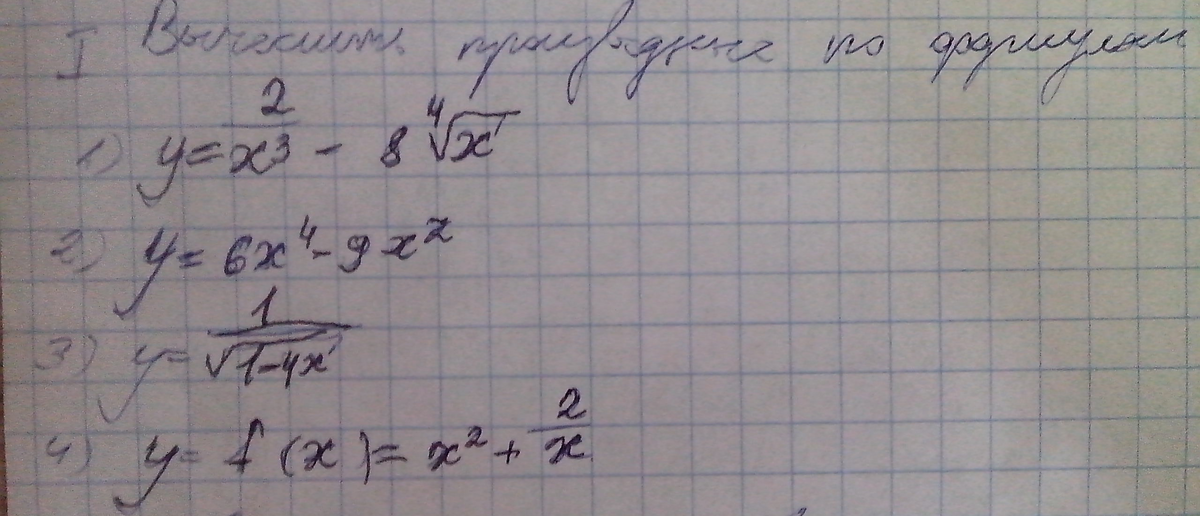 I Вычислить производные по формулам
1) y = 2/x³ - 8 ⁴√x
2) y = 6x⁴ - 9x²
3) y = 1/√(1-4x)
4) y = f(x) = x² + 2/x